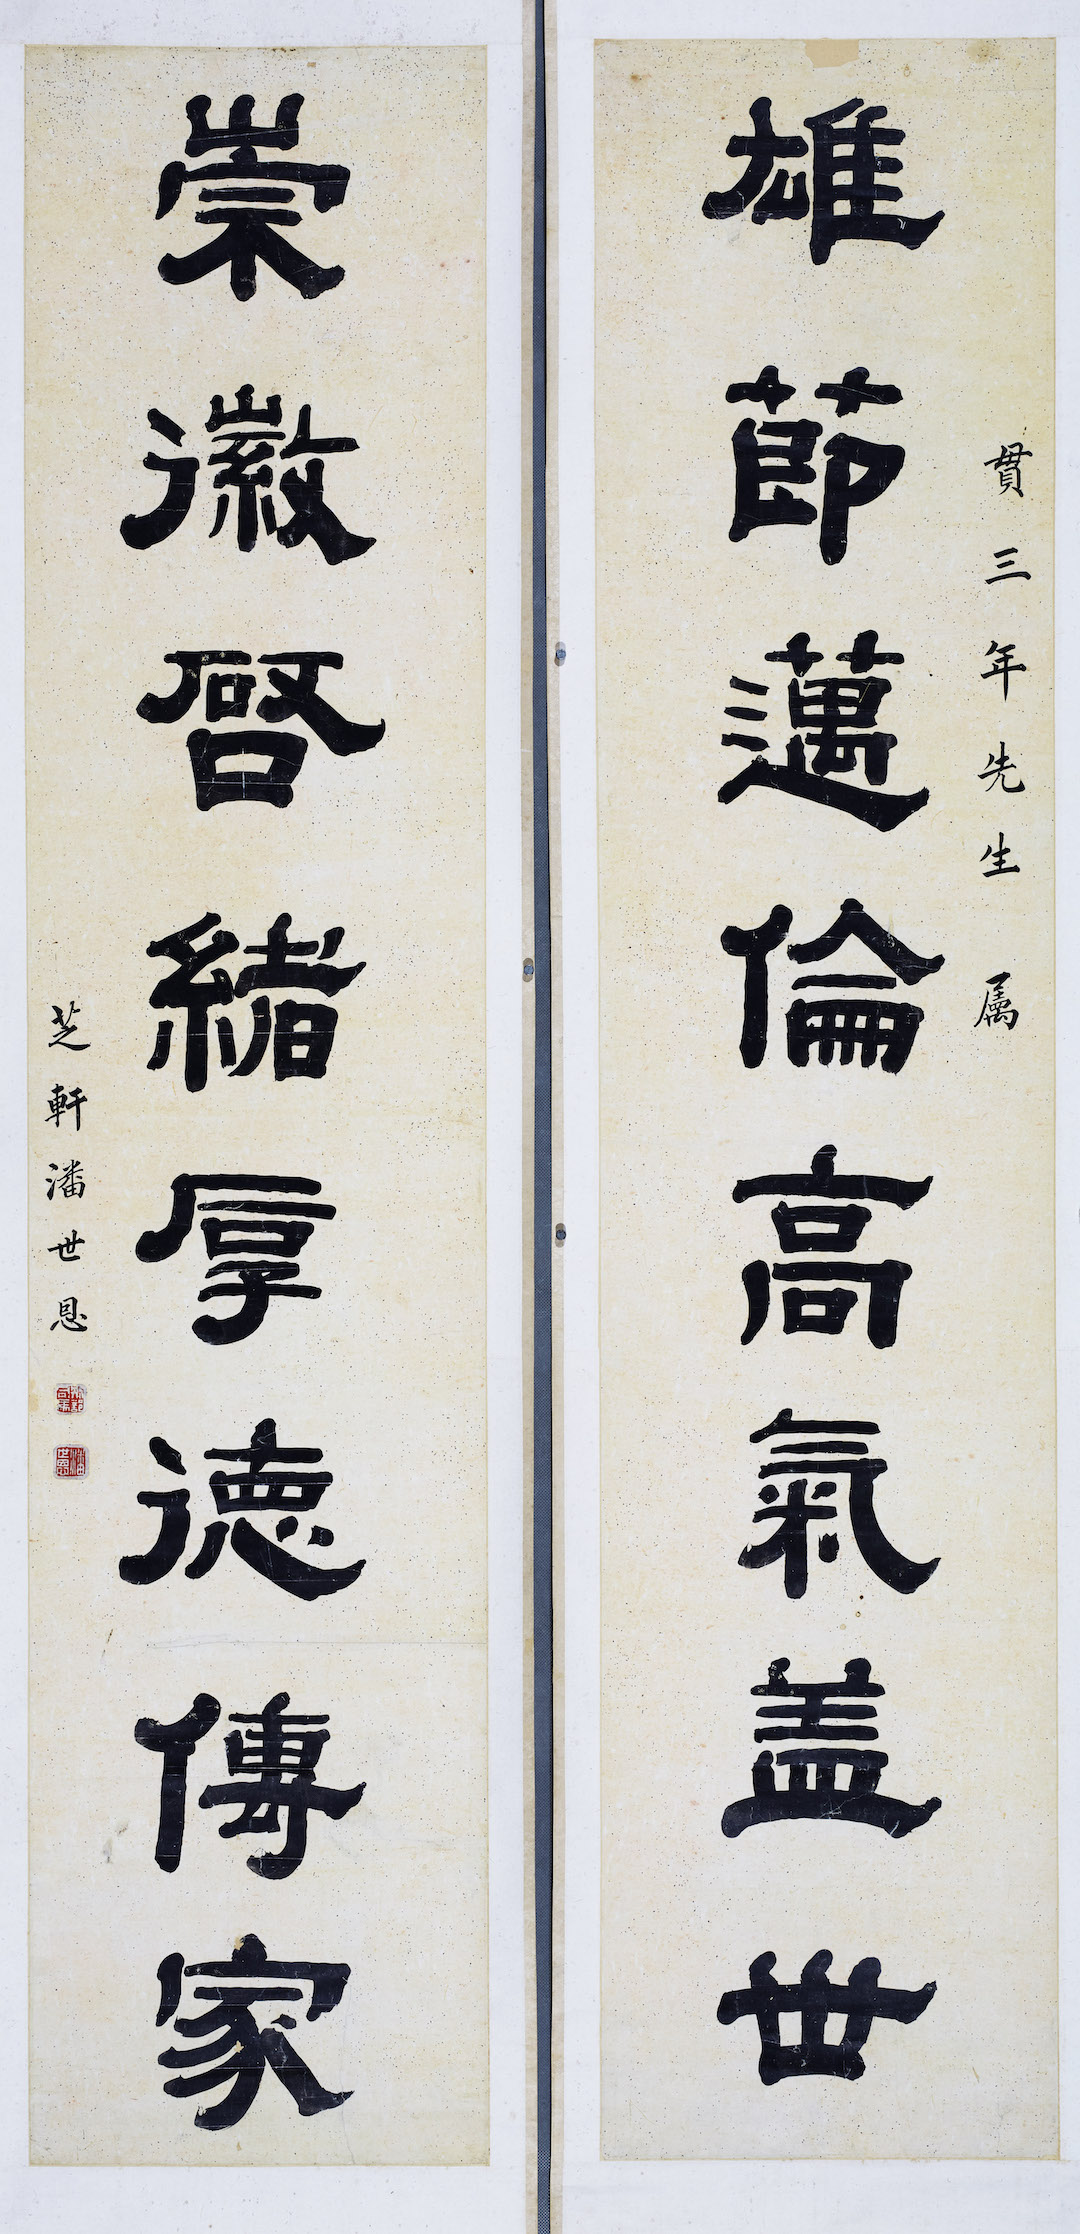 貫三年先生属
雄節邁倫高氣盖世
崇徽啓緒厚德傳家
芝軒潘世恩